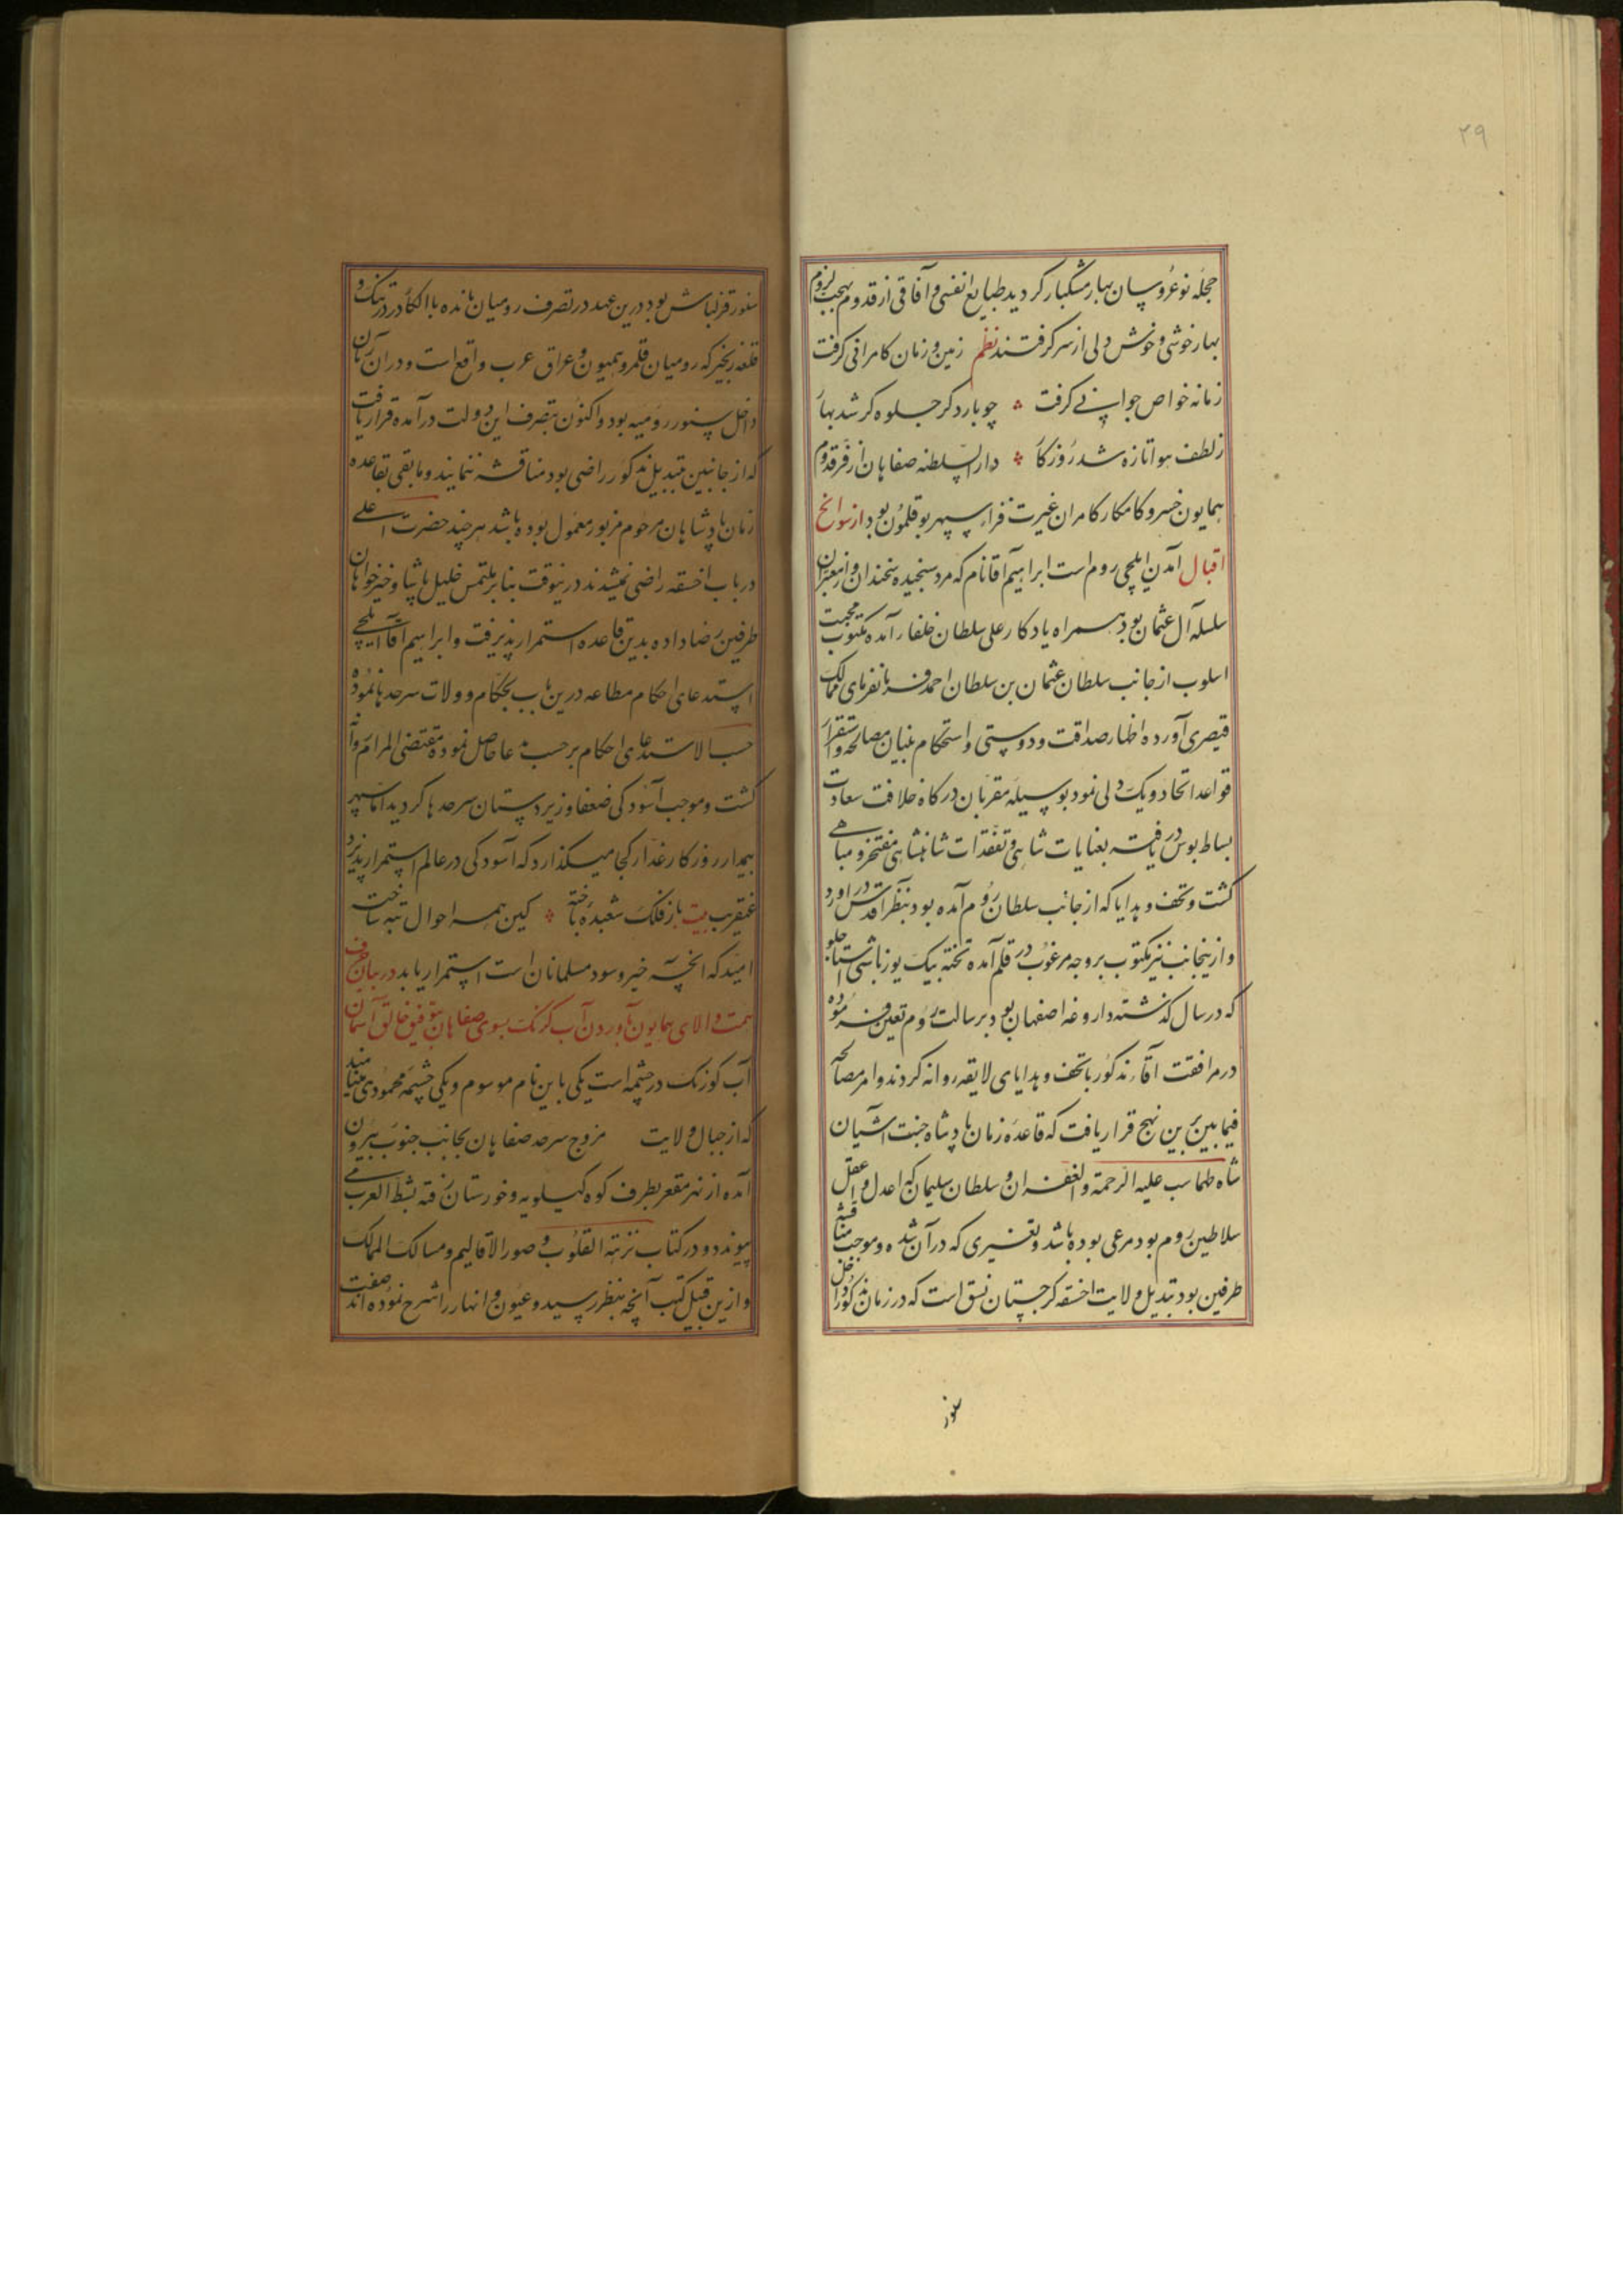 ۲۹
حجله نوعروسان بهار مشکبار کردید طبایع انفسی و آفاقی از قدوم بهجت لزوم
بهار خوشی و خوش دلی از سر کرفتند نظم زمین و زمان کامرانی کرفت
زمانه خواص جوانے کرفت چو بار دکر جلوه کر شد بهار
ز لطف هوا تازه شد روزکار دار السلطنه صفاهان از فر قدوم
همایون خسرو کامکار کامران غیرت فزاء سپهر بوقلمون بود از سوانح
اقبال آمدن ایلچی روم است ابراهیم آقا نام که مرد سنجیده سخندان و از معتبران
سلسله آل عثمان بود همراه یادکار علی سلطان خلفا آمده مکتوب محبت
اسلوب از جانب سلطان عثمان بن سلطان احمد فرمانفرمای ممالک
قیصری آورده اظهار صداقت و دوستی و استحکام بنیان مصالحه و استقرار
قواعد اتحاد و یک دلی نمود بوسیله مقربان درکاه خلافت سعادت
بساط بوس دریافته بعنایات شاهی و تفقدات شاهنشاهی مفتخر و مباهے
کشت و تحف و هدایا که از جانب سلطان روم آمده بود بنظر اقدس در اورد
و ازینجانب نیز مکتوب بر وجه مرغوب در قلم آمده تخته بیک یوزباشی استاجلو
که در سال کذشته داروغه اصفهان بود برسالت روم تعین فرموده
در مرافقت آقا مذکور با تحف و هدایای لایقه روانه کردند و امر مصالحه
فیما بین برین نهج قرار یافت که قاعده زمان پادشاه جنت آشیان
شاه طهماسب علیه الرحمة و الغفران و سلطان سلیمان که اعدل و اعقل
سلاطین روم بود مرعی بوده باشد و تغییری که در آن شده و موجب مناقشه
طرفین بود تبدیل ولایت اخسقه کرجستان نسق است که در زمان مذکور داخل
سنور
سنور قزلباش بود درین عهد در تصرف رومیان مانده با الکاء در تنک و
قلعه زنجیر که رومیان قلمرو همیون و عراق عرب واقع است و در آن زمان
داخل سنور رومیه بود و اکنون بتصرف این دولت درآمده قرار یافت
که از جانبین بتبدیل مذکور راضی بود مناقشه ننمایند و مابقی بقاعده
زمان پادشاهان مرحوم مزبور معمول بوده باشد هر چند حضرت اعلے
در باب اخسقه راضی نمیشدند درینوقت بنا بر ملتمس خلیل پاشا و خیرخواهان
طرفین رضا داده بدین قاعده استمرار پذیرفت و ابراهیم آقا ایلچے
استدعای احکام مطاعه درین باب بحکام و ولات سرحدها نموده
حسب الاستدعای احکام بر حسب مدعا حاصل نموده مقتضی المرام روانه
کشت و موجب آسودکی ضعفا و زیردستان سرحدها کردید اما سپهر
بیمدار روزکار غدار کجا میکذارد که آسودکی در عالم استمرار پذیرد
عنقریب بیت باز فلک شعبده باخته کین همه احوال تبه ساخته
امید که انچه خیر و سود مسلمانان است استمرار یابد در بیان صرف
همت والای همایون بآوردن آب کرنک بسوی صفاهان بتوفیق خالق آسمان
آب کوزنک در چشمه است یکی باین نام موسوم و یکی چشمه محمودی مینامند
که از جبال ولایت مزوج سرحد صفاهان بجانب جنوب بیرون
آمده از نهر مقعر بطرف کوه کیلویه و خورستان رفته بشط العرب مے
پیوندد و در کتاب نزهة القلوب و صور الاقالیم و مسالک الممالک
و ازین قبیل کتب آنچه بنظر رسید و عیون و انهار را شرح نموده اند صفت